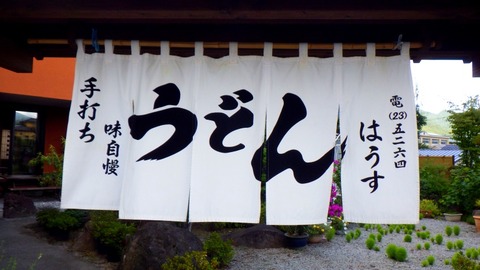 手打ち
味自慢
うどん
はうす
電(23)五二六四